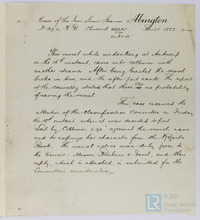 Case of the Iron Screw Steamer Abington
This vessel while undocking at Antwerp
on the 16th instant, came into collision with
another steamer. After being beached the vessel
broke in two, and the after part sank. The report
of the casualty stated that there is no probability
of saving the vessel.
This case received the
attention of the Classification Committee on Friday,
the 18th instant when it was decided to post
"Lost by Collision 3,83" against the vessel's name
and to expunge her character from the Register
Book. The usual notice was duly given to
the Owners, Messrs and their
reply, which is attached, is submitted for the
Committee's consideration.